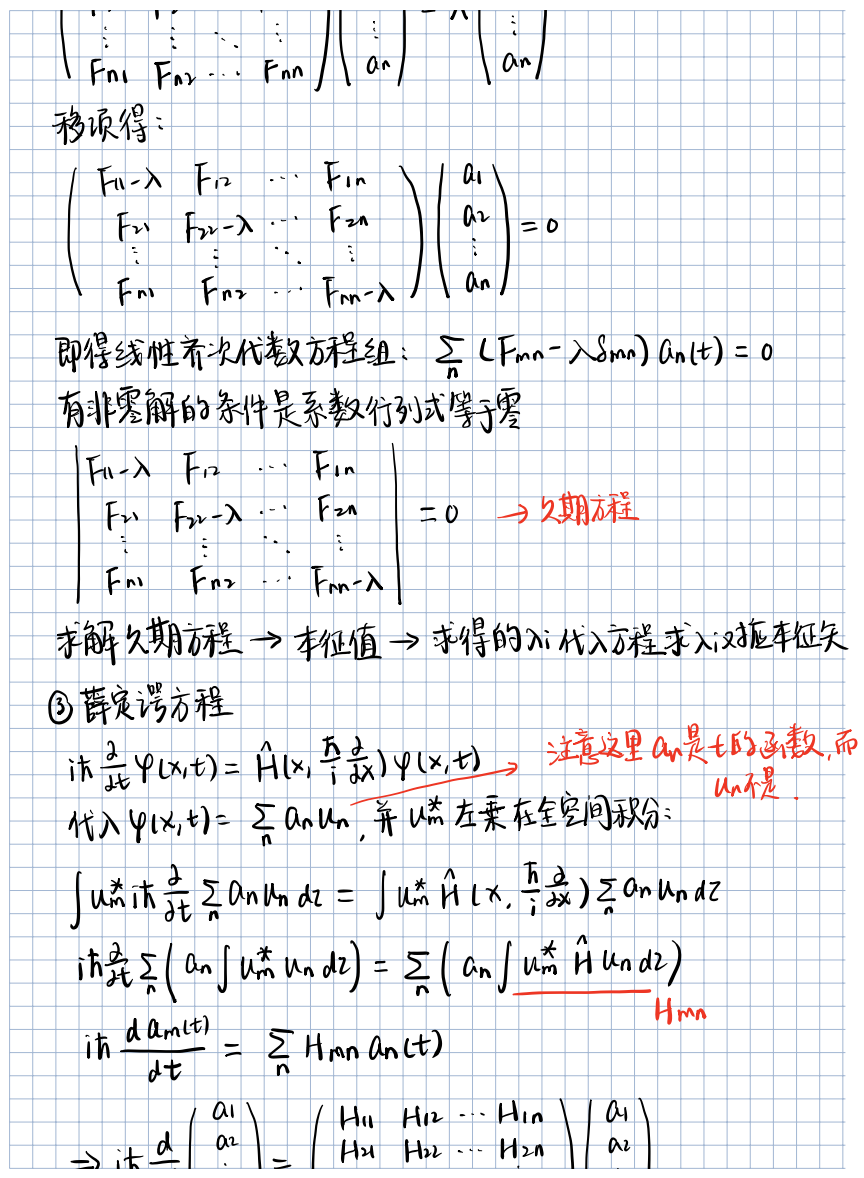 ( ⋮ ⋮ ⋱ ⋮ ) ( ⋮ ) = λ ( ⋮ )
Fn1 Fn2 ⋯ Fnn an an
移项得：
( F11-λ F12 ⋯ F1n ) ( a1 )
F21 F22-λ ⋯ F2n a2 = 0
⋮ ⋮ ⋱ ⋮ ⋮
Fn1 Fn2 ⋯ Fnn-λ an
即得线性齐次代数方程组： ∑n (Fmn - λδmn) an(t) = 0
有非零解的条件是系数行列式等于零
| F11-λ F12 ⋯ F1n |
F21 F22-λ ⋯ F2n = 0 → 久期方程
⋮ ⋮ ⋱ ⋮
Fn1 Fn2 ⋯ Fnn-λ
求解久期方程 → 本征值 → 求得的λi代入方程求λi对应本征矢
③ 薛定谔方程
iħ ∂/∂t ψ(x,t) = Ĥ(x, ħ/i ∂/∂x) ψ(x,t) → 注意这里 an是t的函数，而
un不是.
代入 ψ(x,t) = ∑n an un , 并 um* 左乘在全空间积分：
∫ um* iħ ∂/∂t ∑n an un dτ = ∫ um* Ĥ (x, ħ/i ∂/∂x) ∑n an un dτ
iħ ∂/∂t ∑n ( an ∫ um* un dτ ) = ∑n ( an ∫ um* Ĥ un dτ )
Hmn
iħ dam(t)/dt = ∑n Hmn an(t)
⇒ iħ d ( a1 ) = ( H11 H12 ⋯ H1n ) ( a1 )
a2 H21 H22 ⋯ H2n a2